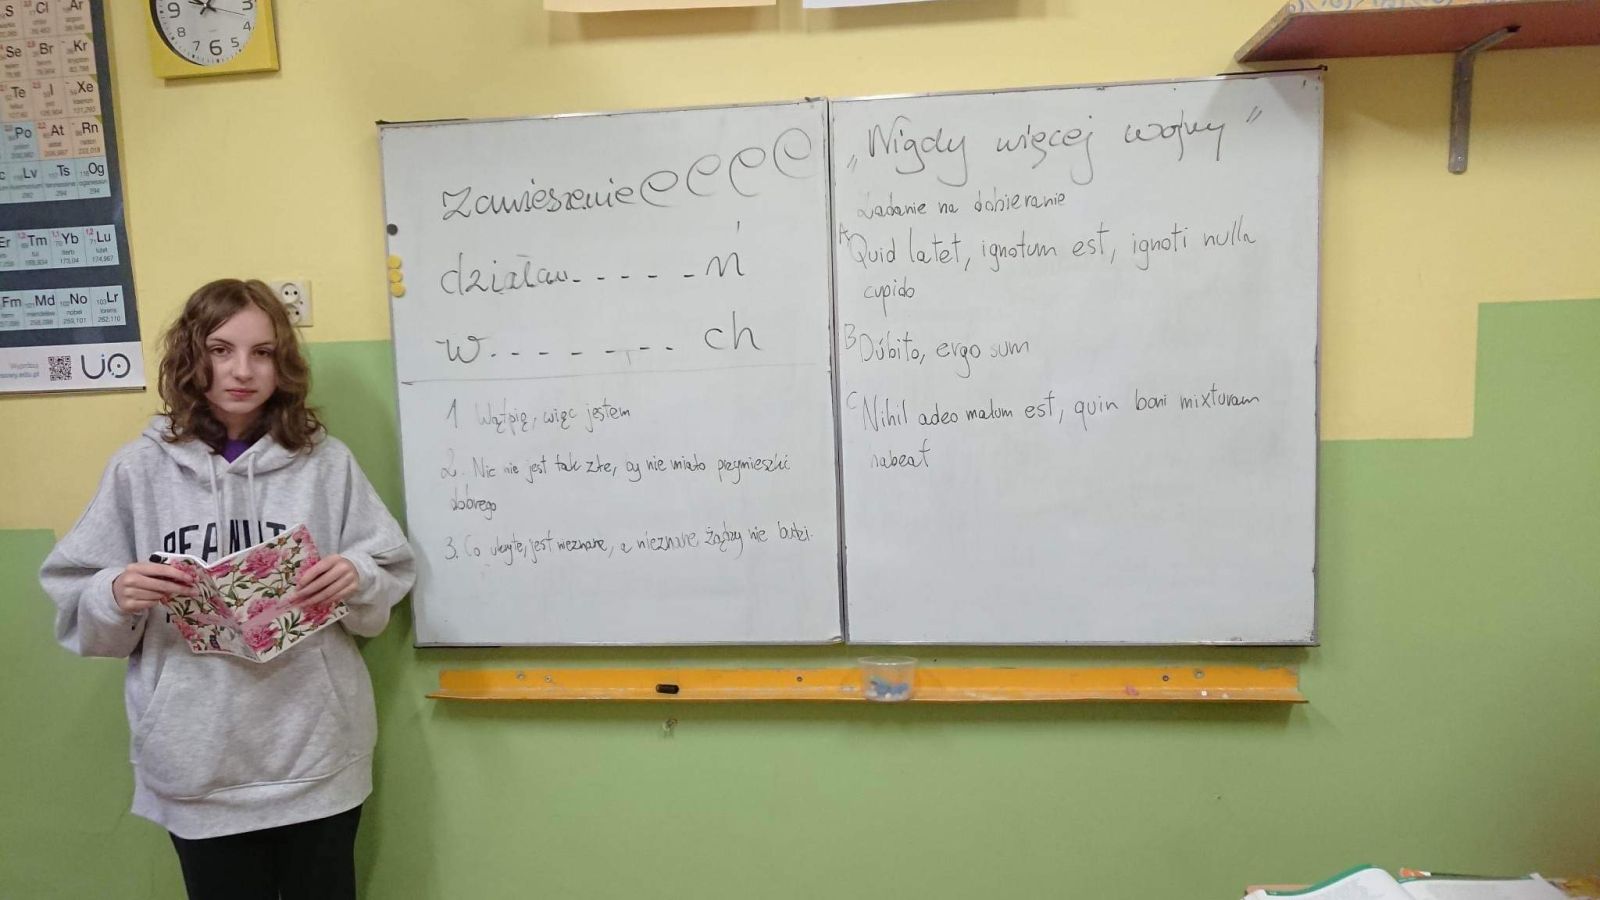 Zawieszenieeeee
działań.....ń
w........ch
1 Wątpię, więc jestem
2. Nic nie jest tak złe, by nie miało przymieszki
dobrego
3. Co ukryte, jest nieznane, a nieznane żądzy nie budzi.
„Nigdy więcej wojny”
Zadanie na dobieranie
A Quid latet, ignotum est, ignoti nulla
cupido
B Dúbito, ergo sum
C Nihil adeo malum est, quin boni mixturam
habeat
PEANUT
9 3
8 4
7 6 5
S Cl Ar
Se Br Kr
Te I Xe
Po At Rn
Lv Ts Og
Er Tm Yb Lu
Fm Md No Lr